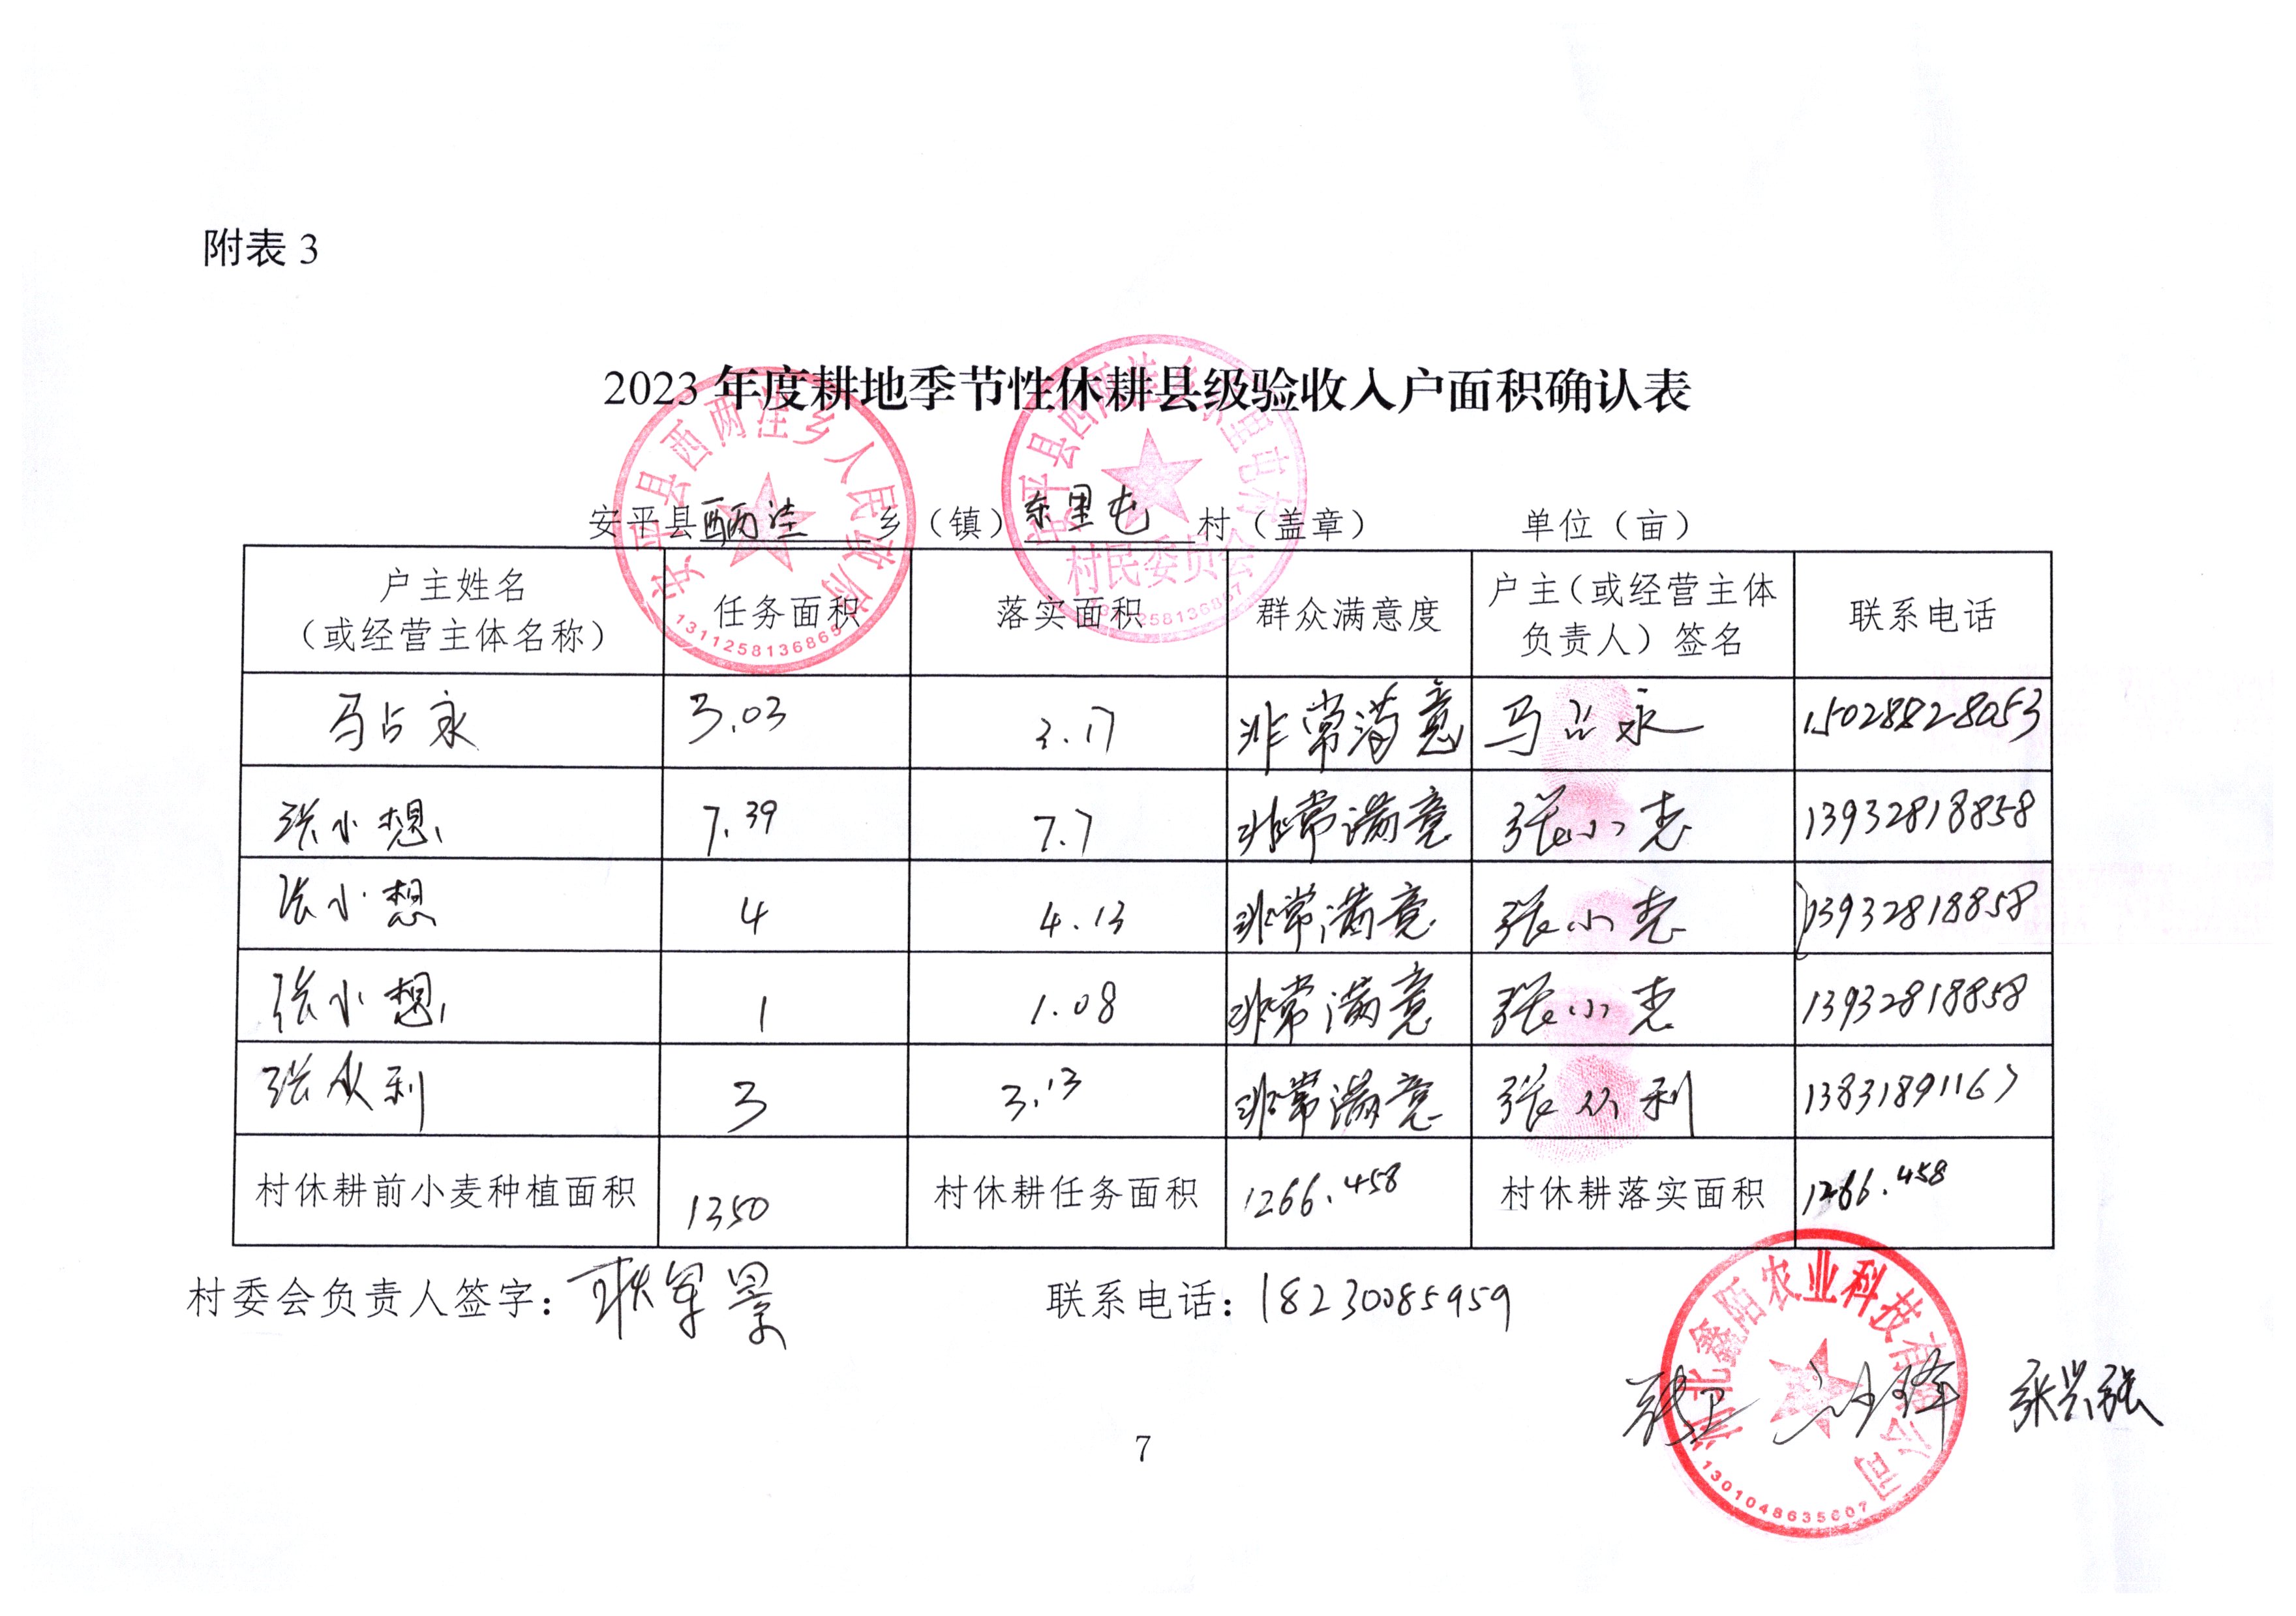 附表 3
2023 年度耕地季节性休耕县级验收入户面积确认表
安平县西两洼乡（镇）东里屯村（盖章） 单位（亩）
户主姓名（或经营主体名称） 任务面积 落实面积 群众满意度 户主（或经营主体负责人）签名 联系电话
马占永 3.03 3.17 非常满意 马占永 15028828053
张小想 7.39 7.7 非常满意 张小 13932818858
张小想 4 4.13 非常满意 张小 13932818858
张小想 1 1.08 非常满意 张小 13932818858
张众利 3 3.13 非常满意 张众利 13831891167
村休耕前小麦种植面积 1350 村休耕任务面积 1266.458 村休耕落实面积 1266.458
村委会负责人签字： 联系电话：18230085959
安平县西两洼乡人民政府
1311258136865
安平县西两洼乡东里屯村
村民委员会
1311258136867
河北鑫陌农业科技有限公司
1301048635607
7